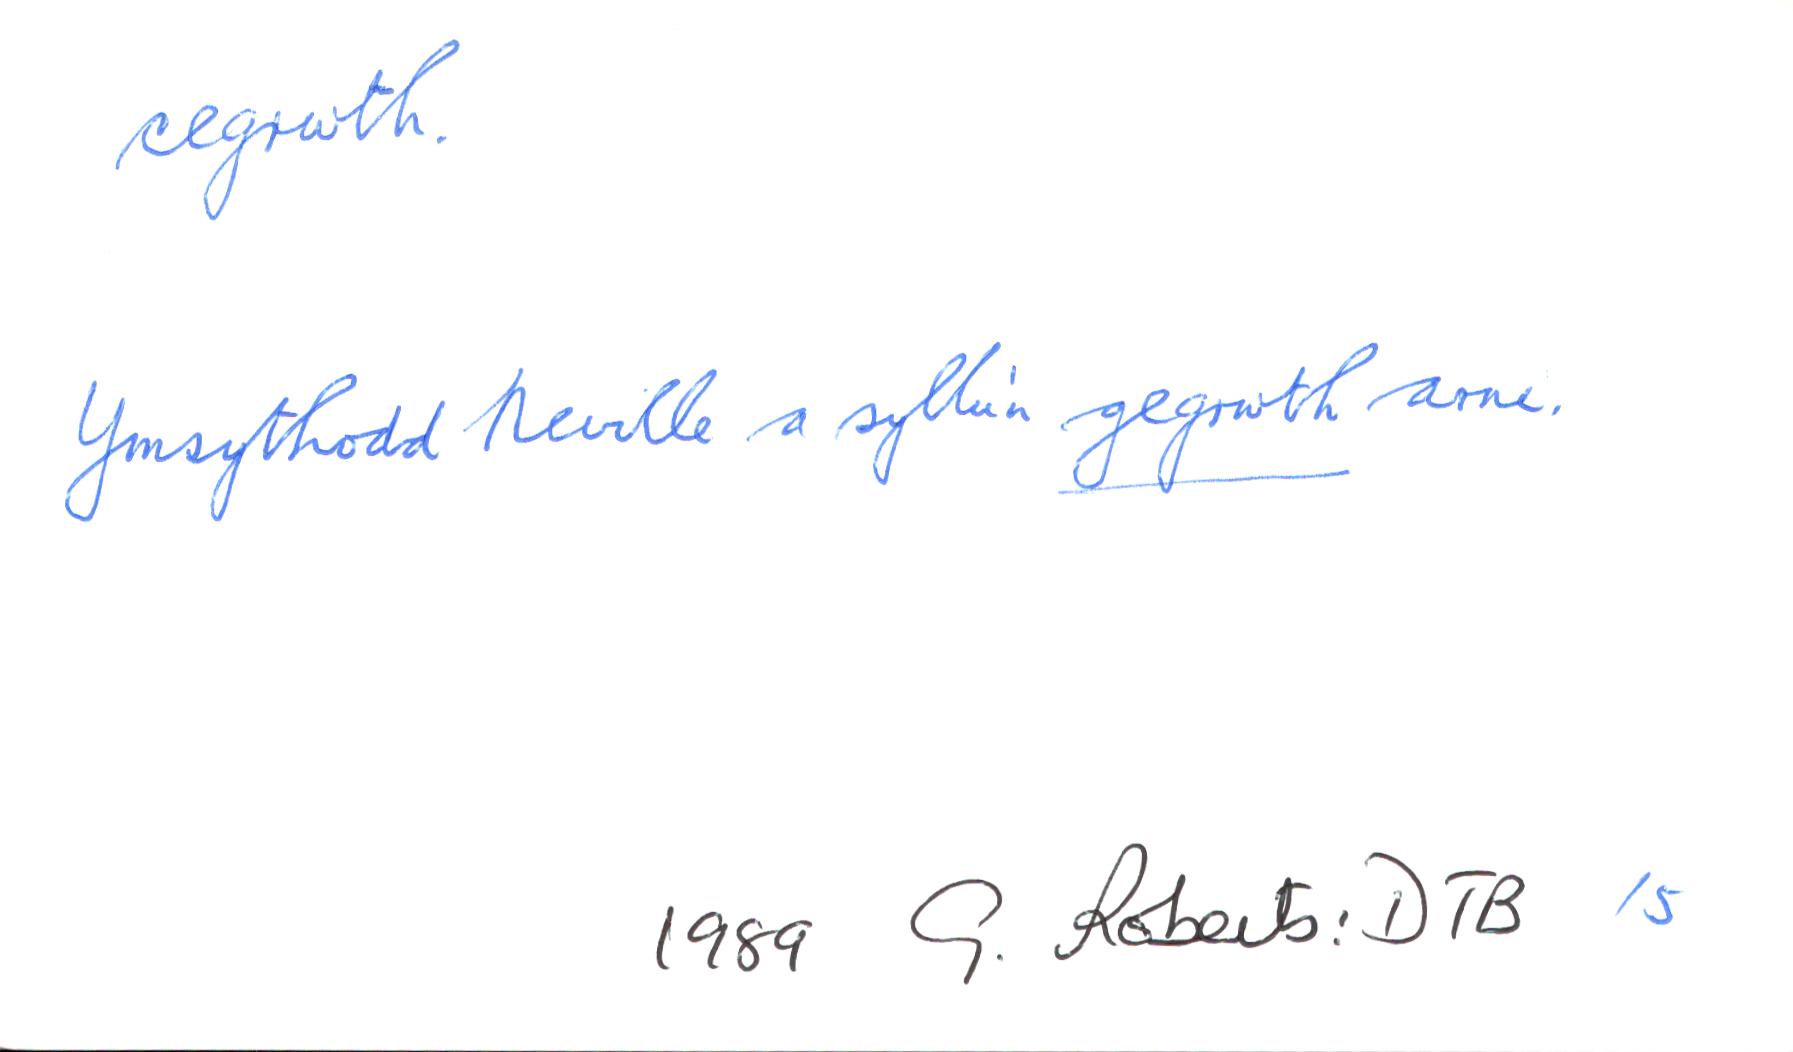 cegrwth.
Ymsythodd Neville a syllu'n gegrwth arne.
1989 G. Roberts: DTB 15